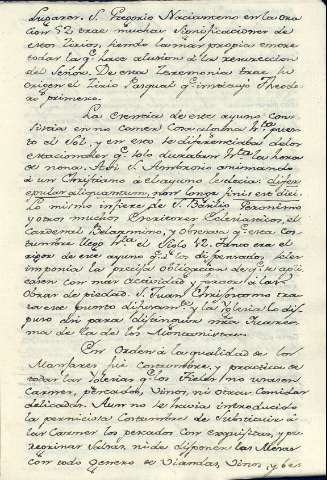 Lugares. S. Gregorio Nacianceno en la Ora
cion 52 trae muchas significaciones de
estos Cirios, siendo la mas propia entre
todas la q.e hace alusion á la resurreccion
del Señor. De esta Ceremonia trae su
origen el Cirio Pasqual q.e instituyó
ro primero.
La Esencia de este ayuno con
sistia en no comer Cosa alguna h.ta puesto
el Sol, y en esto se diferenciaba de los
q.e solo duraban h.ta la hora
de nona. Asi S. Ambrosio animando
á un Christiano á el ayuno le decia: differ
aliquantum, non longe finis est diei.
Lo mismo infiere de S. Basilio Geronimo
y otros muchos Escritores Eclesiasticos, el
Cardenal Belarmino, y observa q.e esta Cos
tumbre llegó h.ta el Siglo 12. Tanto era el
rigor de este ayuno q.e á los dispensados, se les
imponia la precisa obligacion de q.e se apli
casen con mas actividad y á las
Obras de piedad. S. Juan Chrisostomo tra
ta este punto difusam.te y la Yglesia lo dis
puso asi para distinguir nra Quares
ma de la de los
En Orden á la qualidad de los
Manjares, fué Costumbre, y practica de
todas las Yglesias q.e los Fieles no usasen
Carnes, pescados, Vinos, ni otras Comidas
delicadas. Aun no se havia introducido
la perniciosa Costumbre de Substituir á
las Carnes los pescados con exquisitas, y pe
regrinas Salsas, ni de disponer las Mesas
con todo genero de Viandas, Vinos, y be